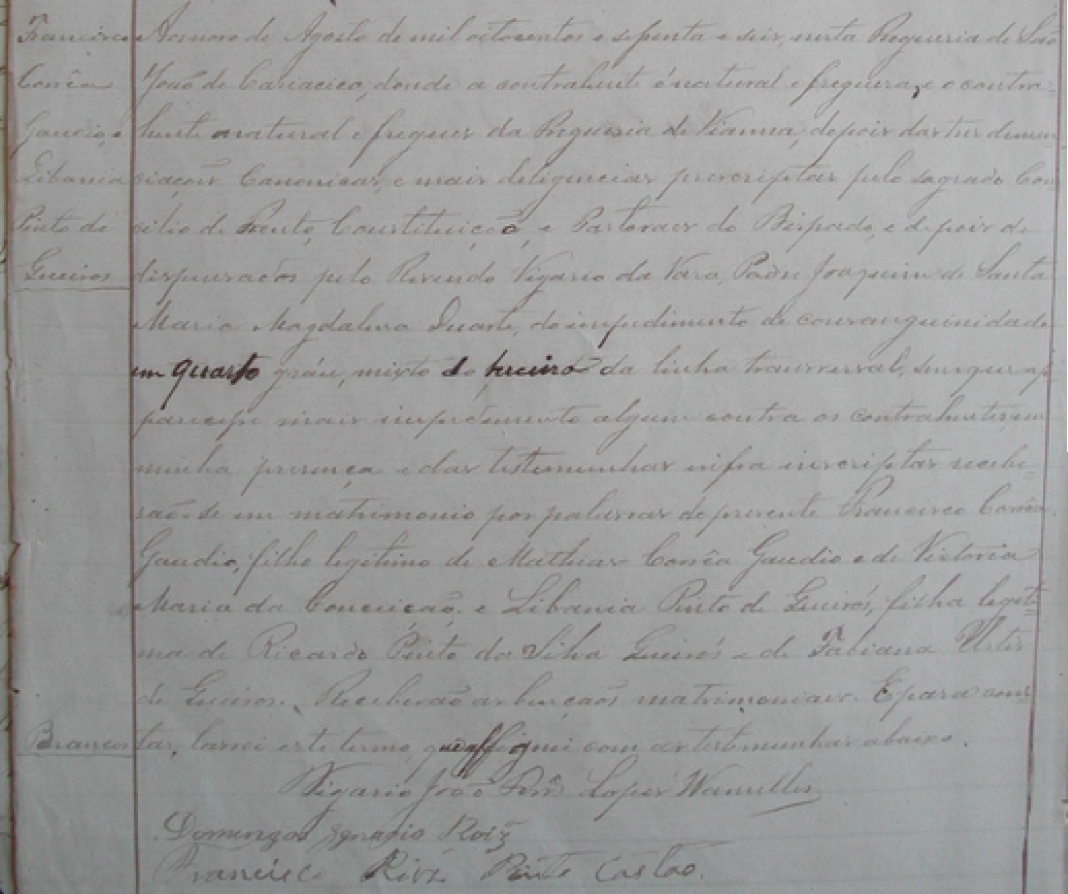 Francisco
Corrêa
Gaudio, e
Libania
Pinto de
Queiros
Aos nove de Agosto de mil oitocentos e septenta e seis, nesta Freguesia de São
João de Cariacica, donde a contrahente é natural e fregueza, e o contra-
hente natural e freguez da Freguesia de Vianna, depois das tres denun
ciaçoes Canonicas, e mais deligencias prescriptas pelo sagrado Con
cilio de Trento, Constituição, e Pastoraes do Bispado, e depois de
dispensados pelo Reverendo Vigario da Vara, Padre Joaquim de Santa
Maria Magdalena Duarte, do impedimento de consanguinidade
em quarto gráu, mixto do terceiro da linha transversal, sem que ap
parecesse mais impedimento algum contra os contrahentes, em
minha presença e das testemunhas infra inscriptas recebe-
rão-se em matrimonio por palavras de presente Francisco Corrêa
Gaudio, filho legitimo de Mathias Corrêa Gaudio e de Victoria
Maria da Conceição, e Libania Pinto de Queirós, filha legiti-
ma de Ricardo Pinto da Silva Queirós e de Fabiana
de Queiros. Receberão as bençãos matrimoniaes. E para cons
Brancos
tar, lavrei este termo, que assignei com as testemunhas abaixo.
Vigario João Lopes
Domingos Ignacio Roiz
Francisco Pinto